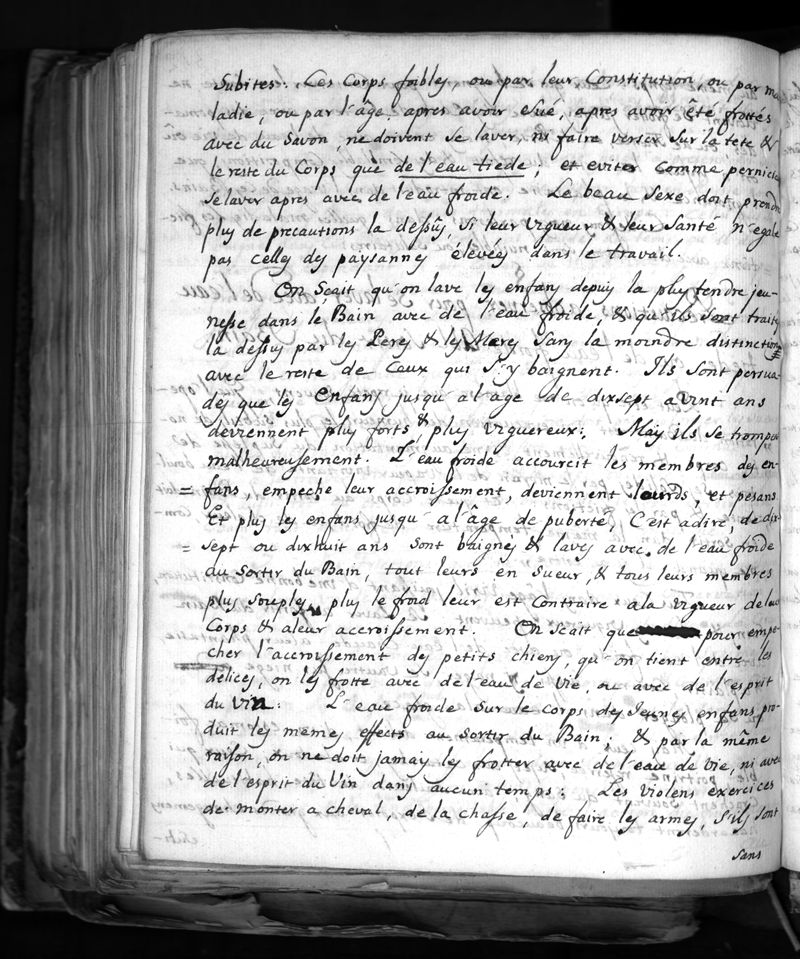 Subites. Les Corps foibles, ou par leur Constitution, ou par ma
ladie, ou par l'âge, apres avoir sué, apres avoir êté frottés
avec du Savon, ne doivent se laver, ni faire verser sur la tete &
le reste du Corps que de l'eau tiede; et eviter comme pernicie
se laver apres avec de l'eau froide. Le beau Sexe doit prendre
plus de precautions la dessus, si leur vigueur & leur santé n'egale
pas celles des paysannes élevées dans le travail.
On Sçait qu'on lave les enfans depuis la plus tendre jeu-
nesse dans le Bain avec de l'eau froide, & qu'ils sont traités
la dessus par les Peres & les Meres sans la moindre distinction
avec le reste de Ceux qui s'y baignent. Ils sont persua-
des que les Enfans jusqu'a l'age de dixsept a vint ans
deviennent plus forts & plus viguereux: Mais ils se trompent
malheureusement. L'eau froide accourcit les membres des en-
= fans, empeche leur accroissement, deviennent lourds, et pesans
Et plus les enfans jusqu'a l'âge de puberté, C'est adire, de dix-
= sept ou dixhuit ans sont baignés & lavés avec de l'eau froide
au Sortir du Bain, tout leurs en sueur, & tous leurs membres
plus souples, plus le froid leur est Contraire a la vigueur de leur
Corps & a leur accroissement. On Scait que pour empe-
cher l'accroissement des petits chiens, qu'on tient entre les
delices, on les frotte avec de l'eau de vie, ou avec de l'esprit
du vin: L'eau froide sur le corps des Jeunes enfans pro-
duit les memes effects au sortir du Bain; & par la même
raison, on ne doit jamais les frotter avec de l'eau de vie, ni avec
de l'esprit du Vin dans aucun temps: Les violens exercices
de monter a cheval, de la chasse, de faire les armes, s'ils sont
sans